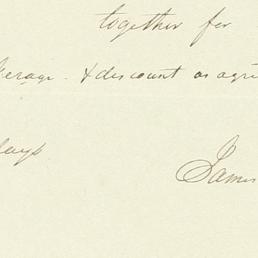 together for
kerage. & discount as agre
days
James